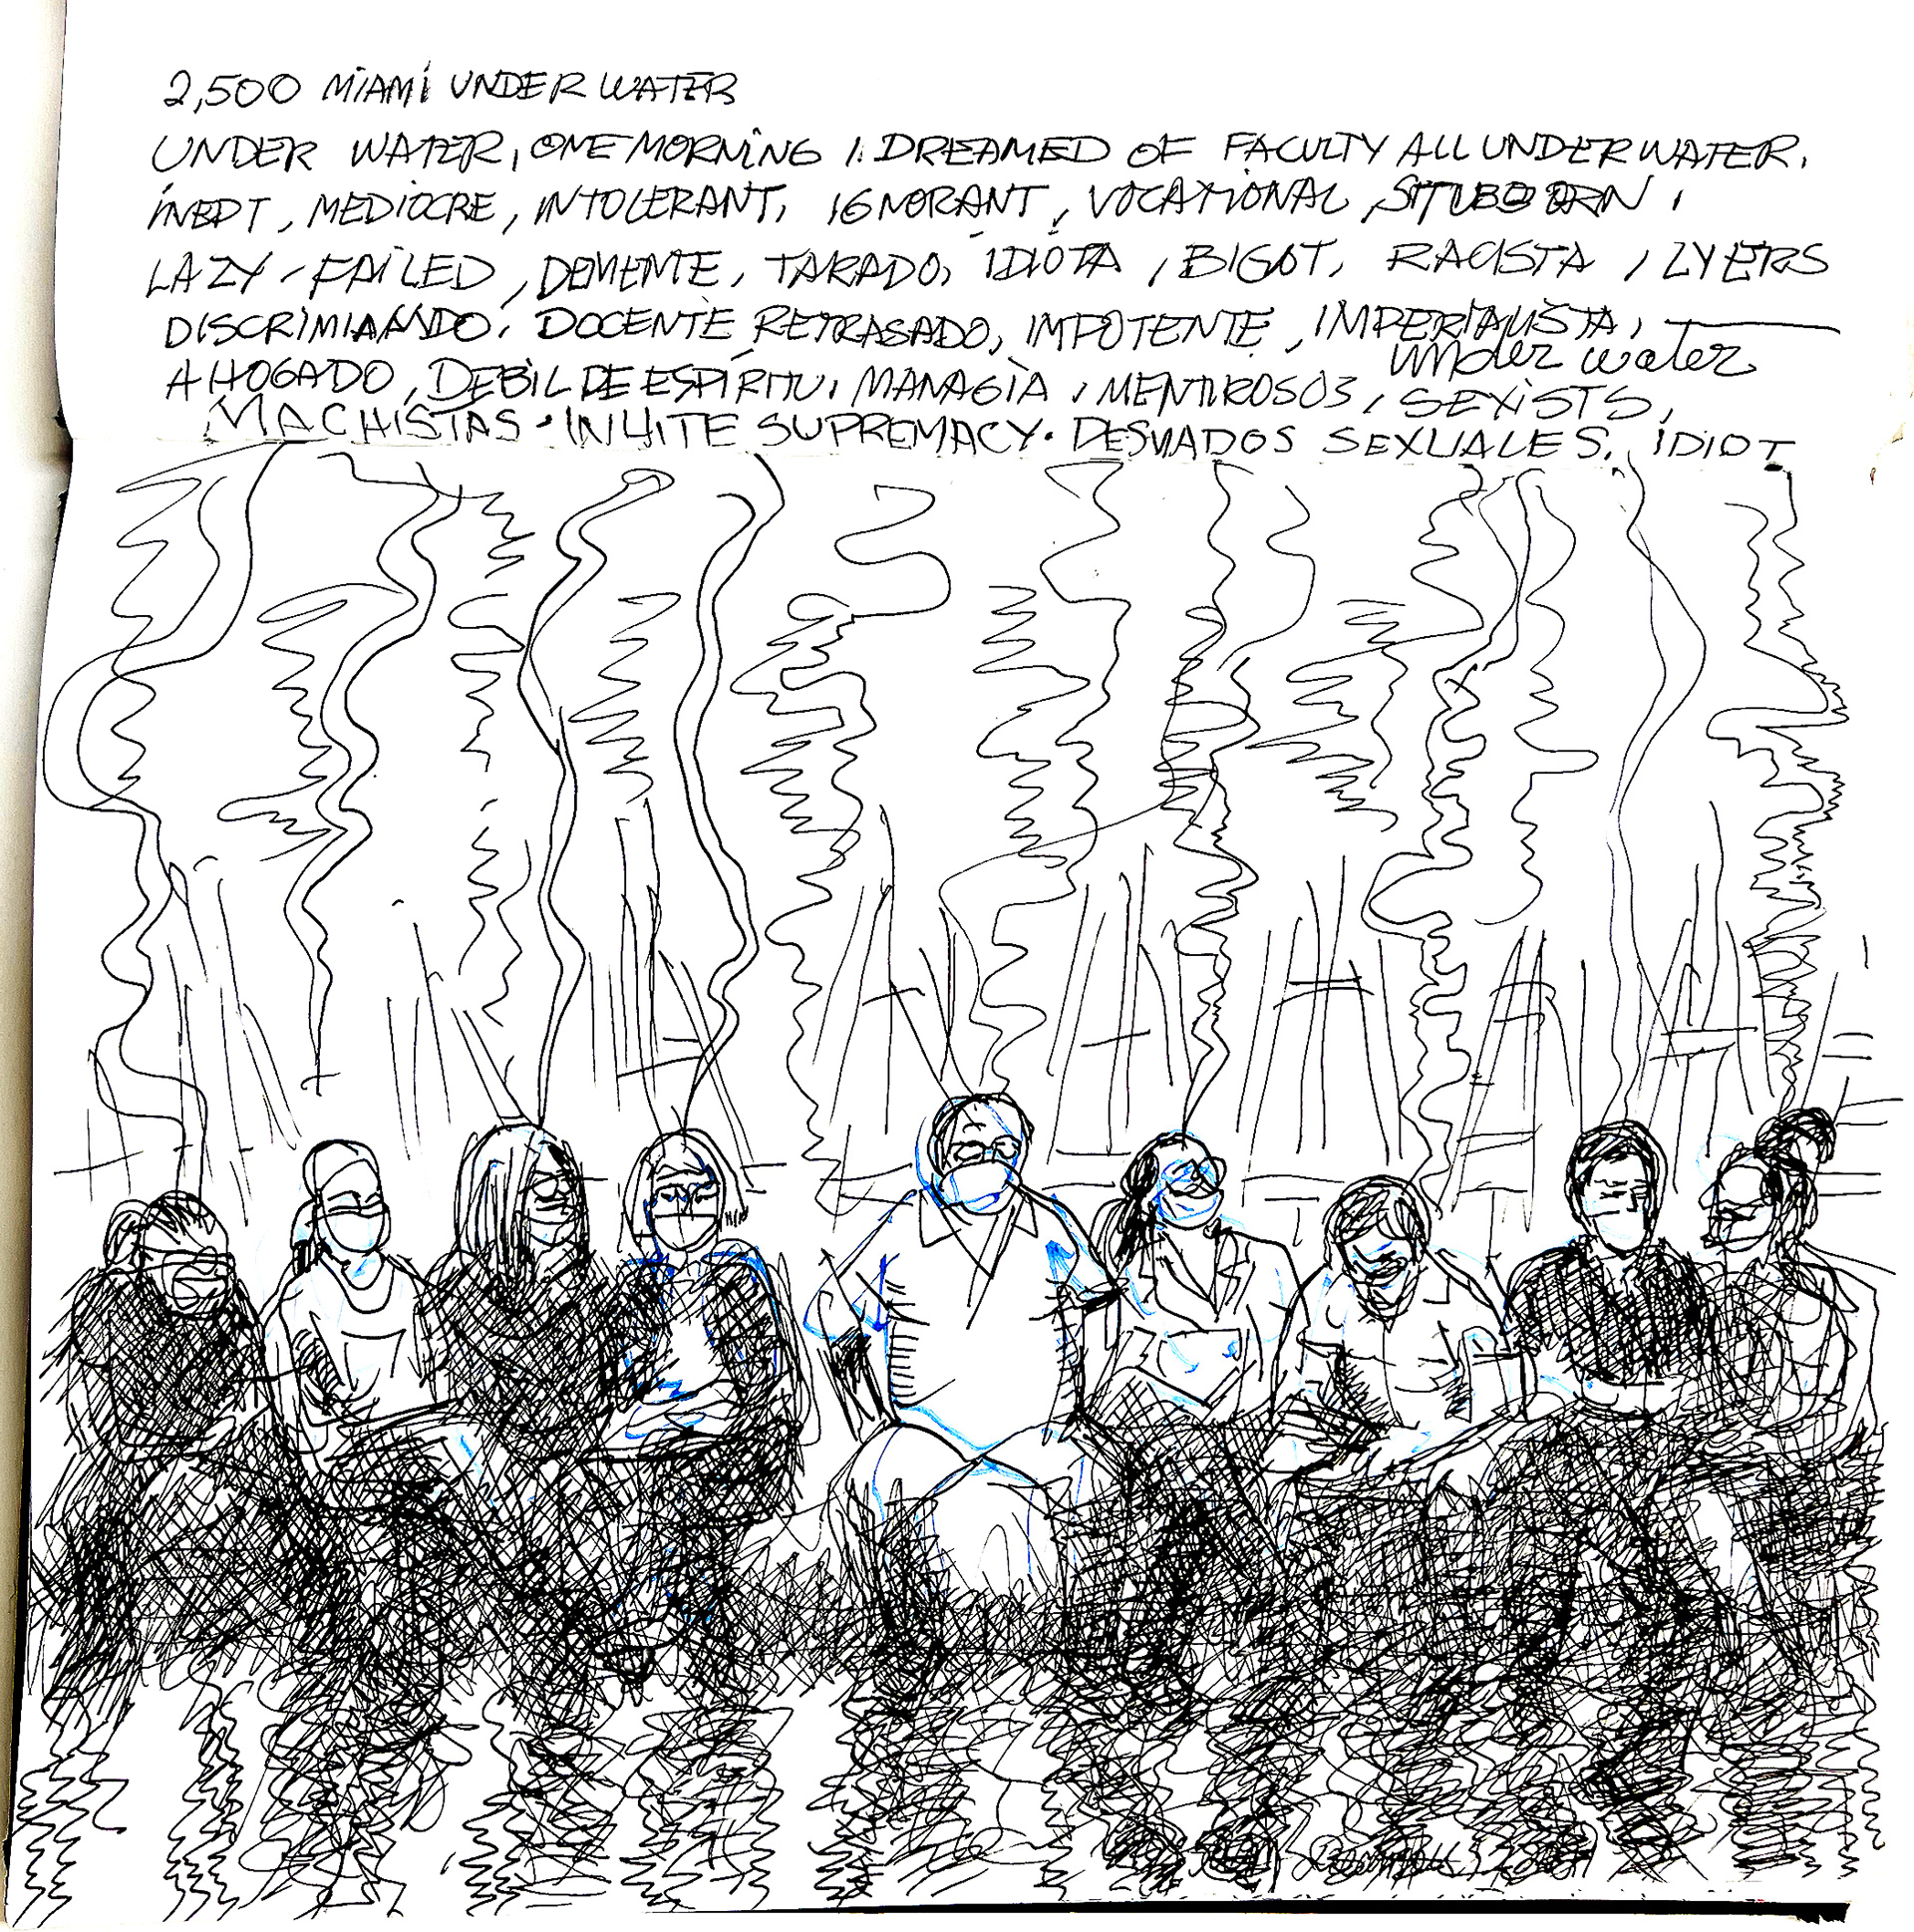 2,500 MIAMI UNDER WATER
UNDER WATER, ONE MORNING I DREAMED OF FACULTY ALL UNDER WATER.
INEPT, MEDIOCRE, INTOLERANT, IGNORANT, VOCATIONAL, STUBBORN,
LAZY - FAILED, DEMENTE, TARADO, IDIOTA, BIGOT, RACISTA, LYERS
DISCRIMIANDO, DOCENTE RETRASADO, IMPOTENTE, IMPERIALISTA,
under water
AHOGADO, DEBIL DE ESPÍRITU, MENTIROSOS, SEXISTS,
MACHISTAS. WHITE SUPREMACY. DESVIADOS SEXUALES. IDIOT